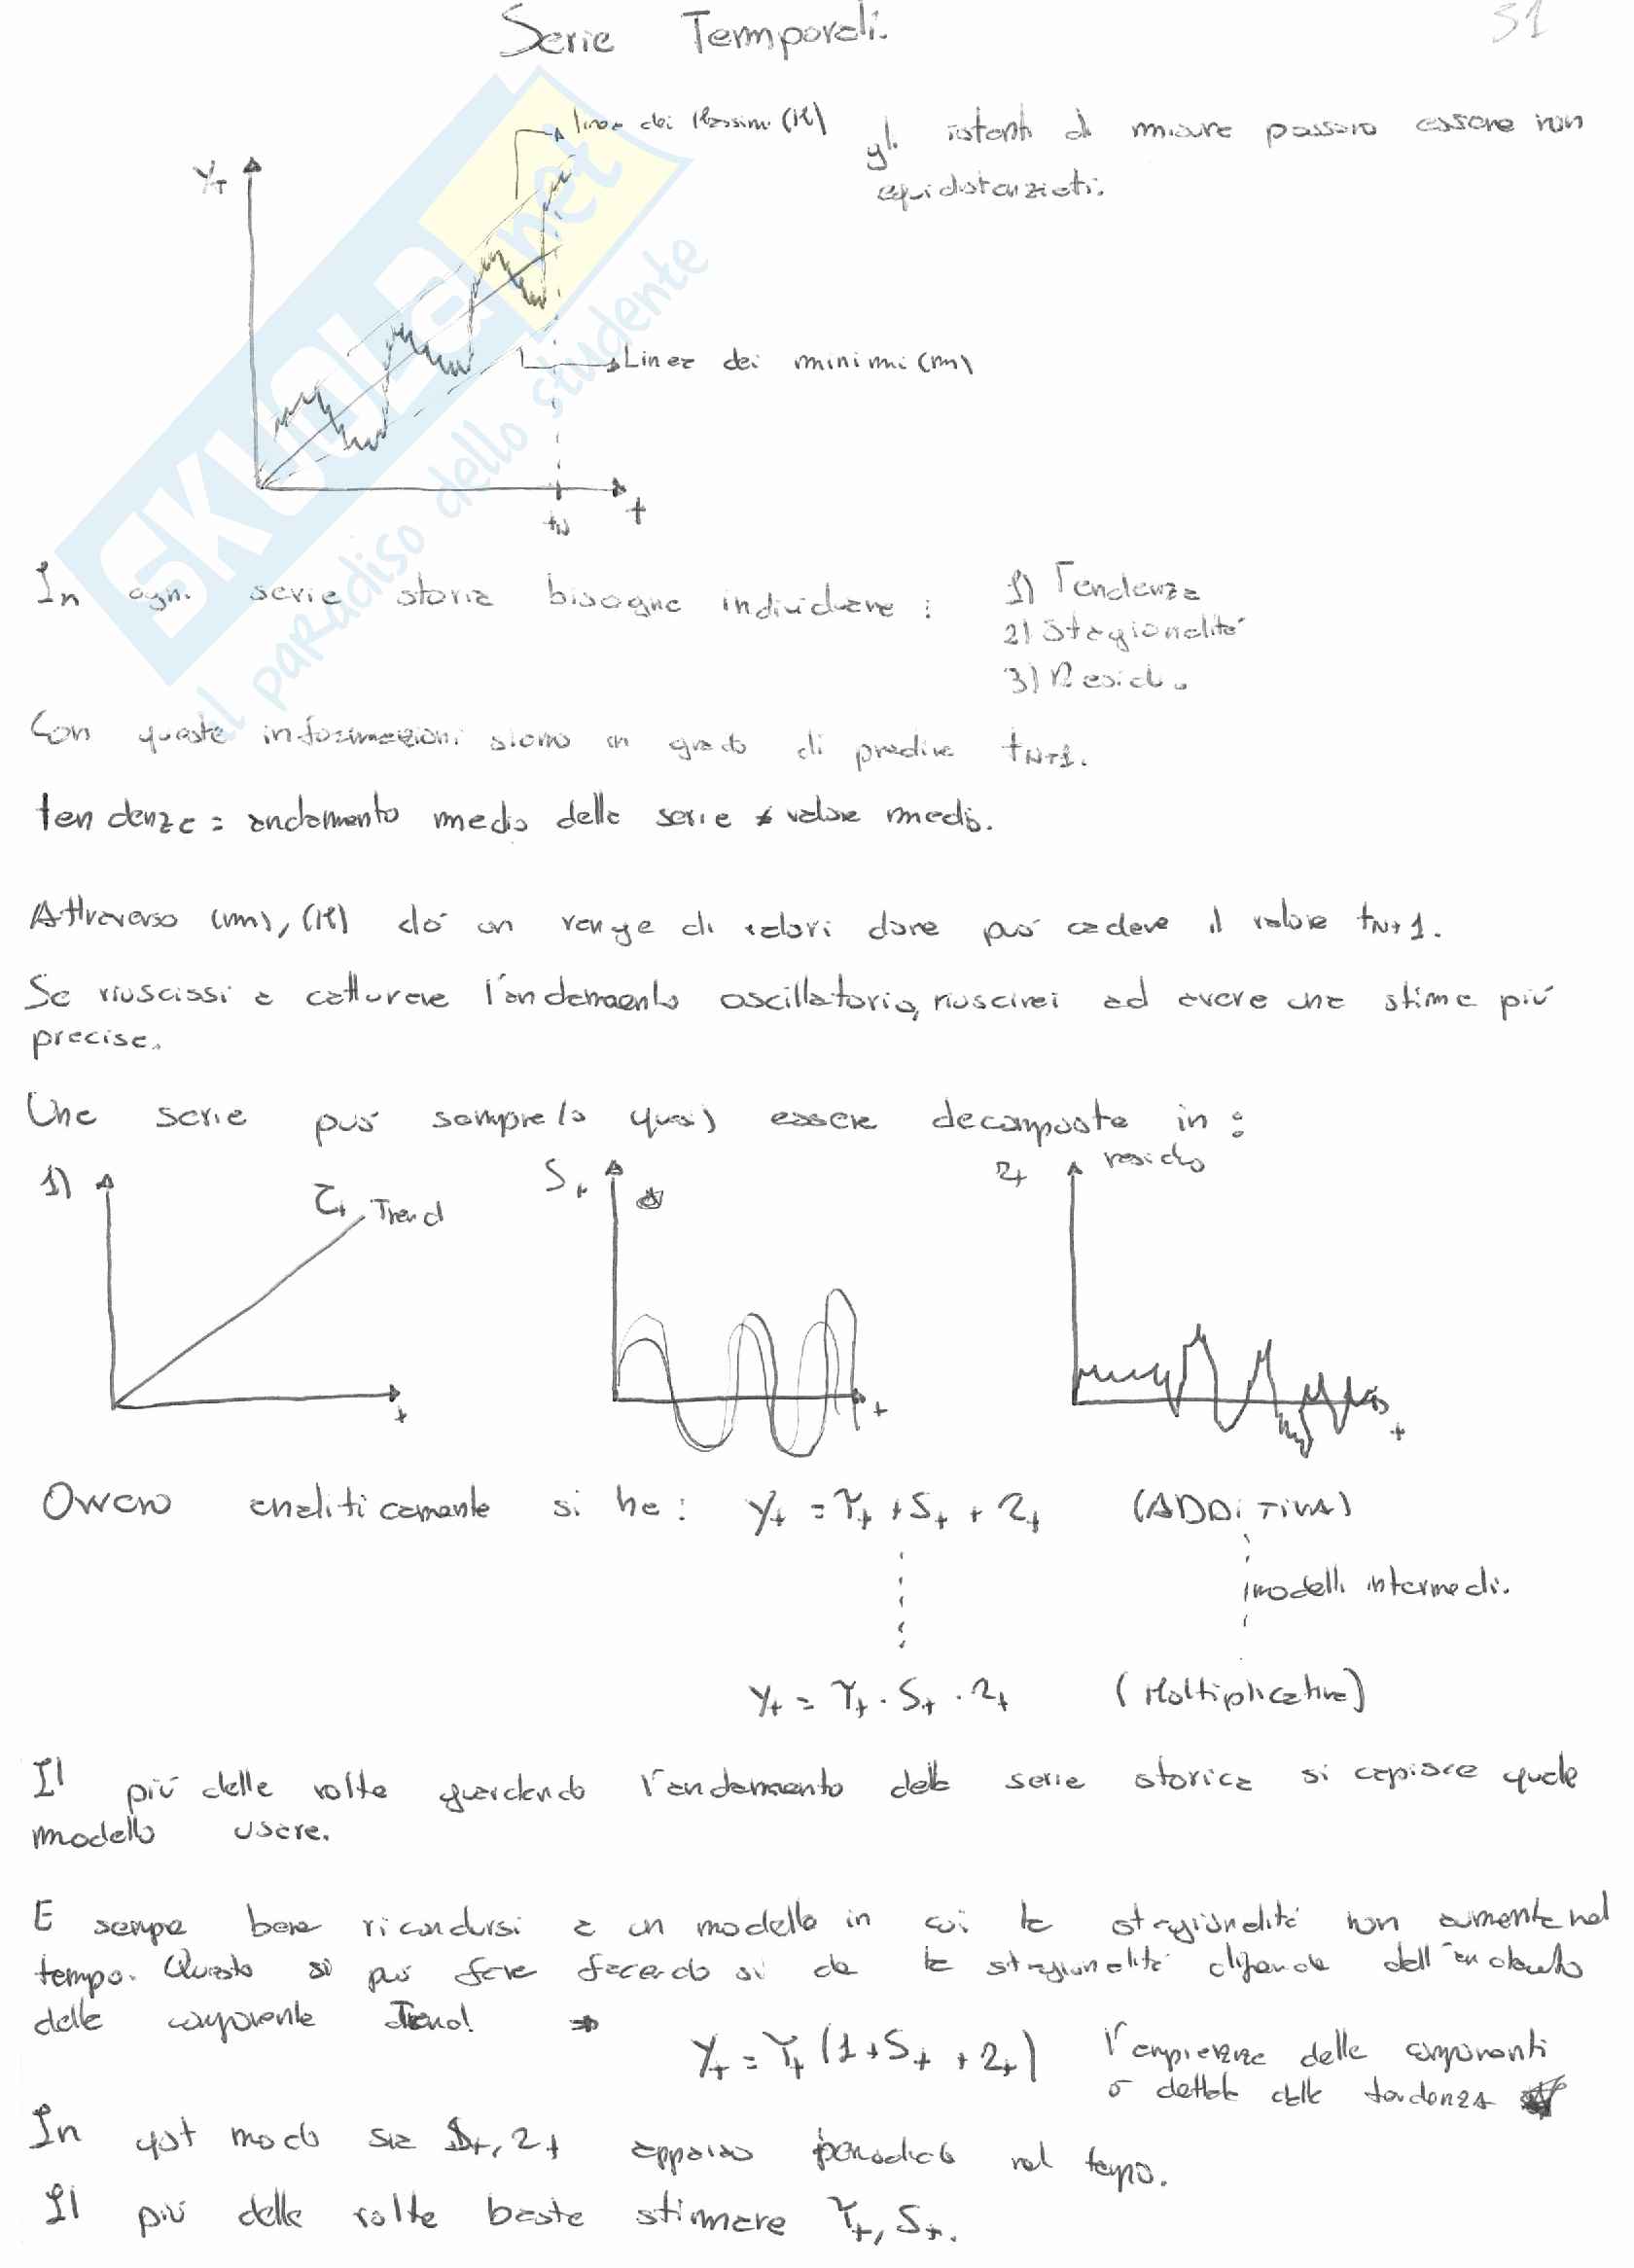 Serie Temporali.
51
YT
linea dei Massimi (M)
gli istanti di misure possono essere non
equidistanziati.
Linea dei minimi (m)
tN
t
SKUOLA.net
il paradiso dello studente
In ogni serie storia bisogna individuare :
1) Tendenza
2) Stagionalità
3) Residuo
Con queste informazioni siamo in grado di predire tN+1.
tendenza = andamento medio della serie ≠ valore medio.
Attraverso (m), (M) dò un range di valori dove può cadere il valore tN+1.
Se riuscissi a catturare l'andamento oscillatorio, riuscirei ad avere una stima più
precisa.
Una serie può sempre (o quasi) essere decomposta in :
1) τt Trend
St
rt residuo
t
t
t
Ovvero analiticamente si ha : Yt = τt + St + rt (ADDITIVA)
modelli intermedi.
Yt = τt · St · rt (Moltiplicativa)
Il più delle volte guardando l'andamento della serie storica si capisce quale
modello usare.
E sempre bene ricondursi a un modello in cui la stagionalità non aumenta nel
tempo. Questo si può fare facendo sì che la stagionalità dipenda dall'andamento
della componente Trend. ⇒
Yt = τt (1 + St + rt) l'ampiezza delle componenti
è dettata dalla tendenza
In qst modo sia St, rt appaiono periodici nel tempo.
Il più delle volte basta stimare τt, St.